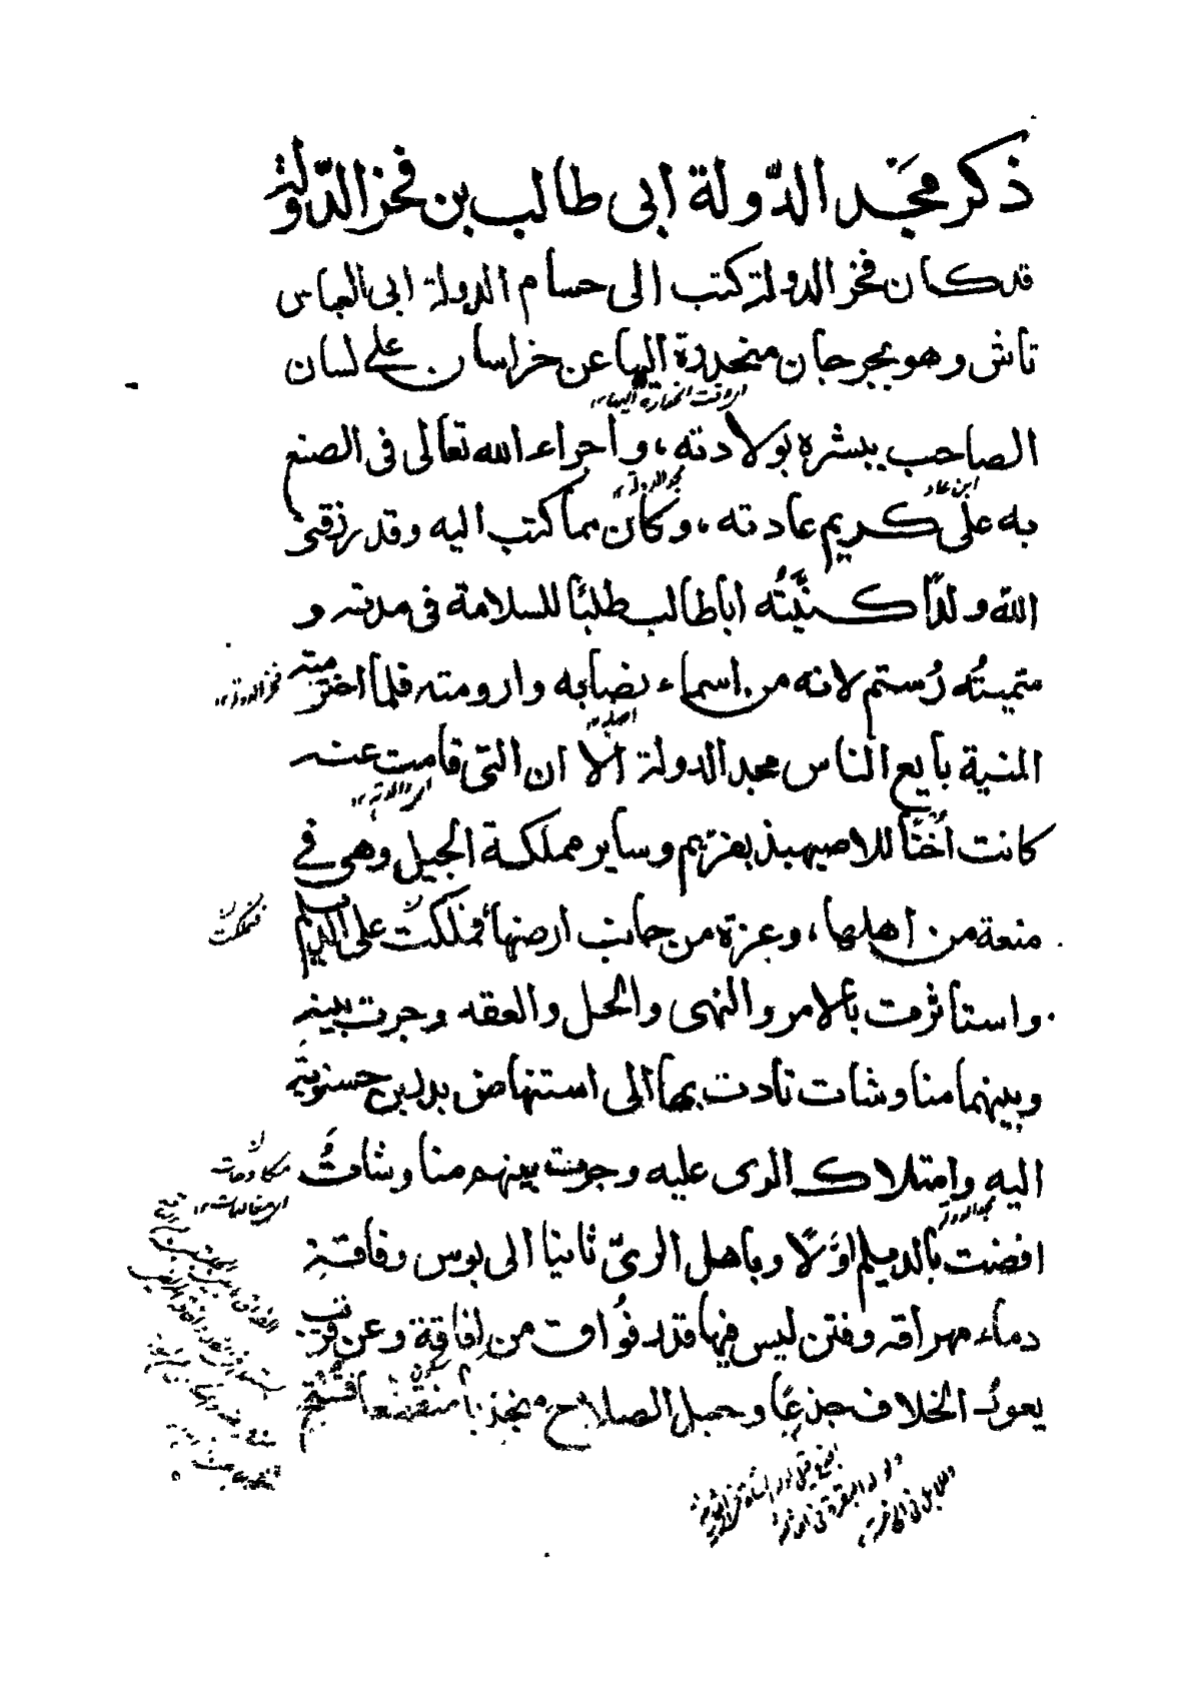 ذكر مجد الدّولة ابى طالب بن فخر الدّولة
قد كان فخر الدولة كتب الى حسام الدولة ابى العباس
تاش وهو بجرجان منحدره اليها عن خراسان على لسان
الصاحب يبشره بولادته، واجراء الله تعالى فى الصنع
به على كريم عادته، وكان مما كتب اليه وقد رزقنى
الله ولدًا كنّيتُه ابا طالب طلبًا للسلامة فى مدته و
سميتُه رُستم لانه من اسماء نصابه وارومته فلما اخترمته
المنية بايع الناس مجد الدولة الا ان التى قامت عنه
كانت اُختًا للاصبهبذ بفرّيم وساير مملكة الجبل وهى فى
منعة من اهلها، وعزة من جانب ارضها، فملكت على الديلم
واستاثرت بالامر والنهى والحل والعقد وجرت بينه
وبينهما مناوشات تادت بها الى استنهاض بدر بن حسنويه
اليه وامتلاك الرى عليه وجرت بينهم مناوشاتٌ
افضت بالديلم اوّلًا وباهل الرىّ ثانيا الى بوس وفاقة
دماء مهراقه وفتن ليس فيها قدر فُواق من اِفاقة وعن قريب
يعودُ الخلاف جذعًا وحبل الصلاح منجذبا منقطعا
ابن عباد
مجد الدولة
فخر الدولة
اصله
اى والدته
فتملكت
مكاوحات
مجد الدولة